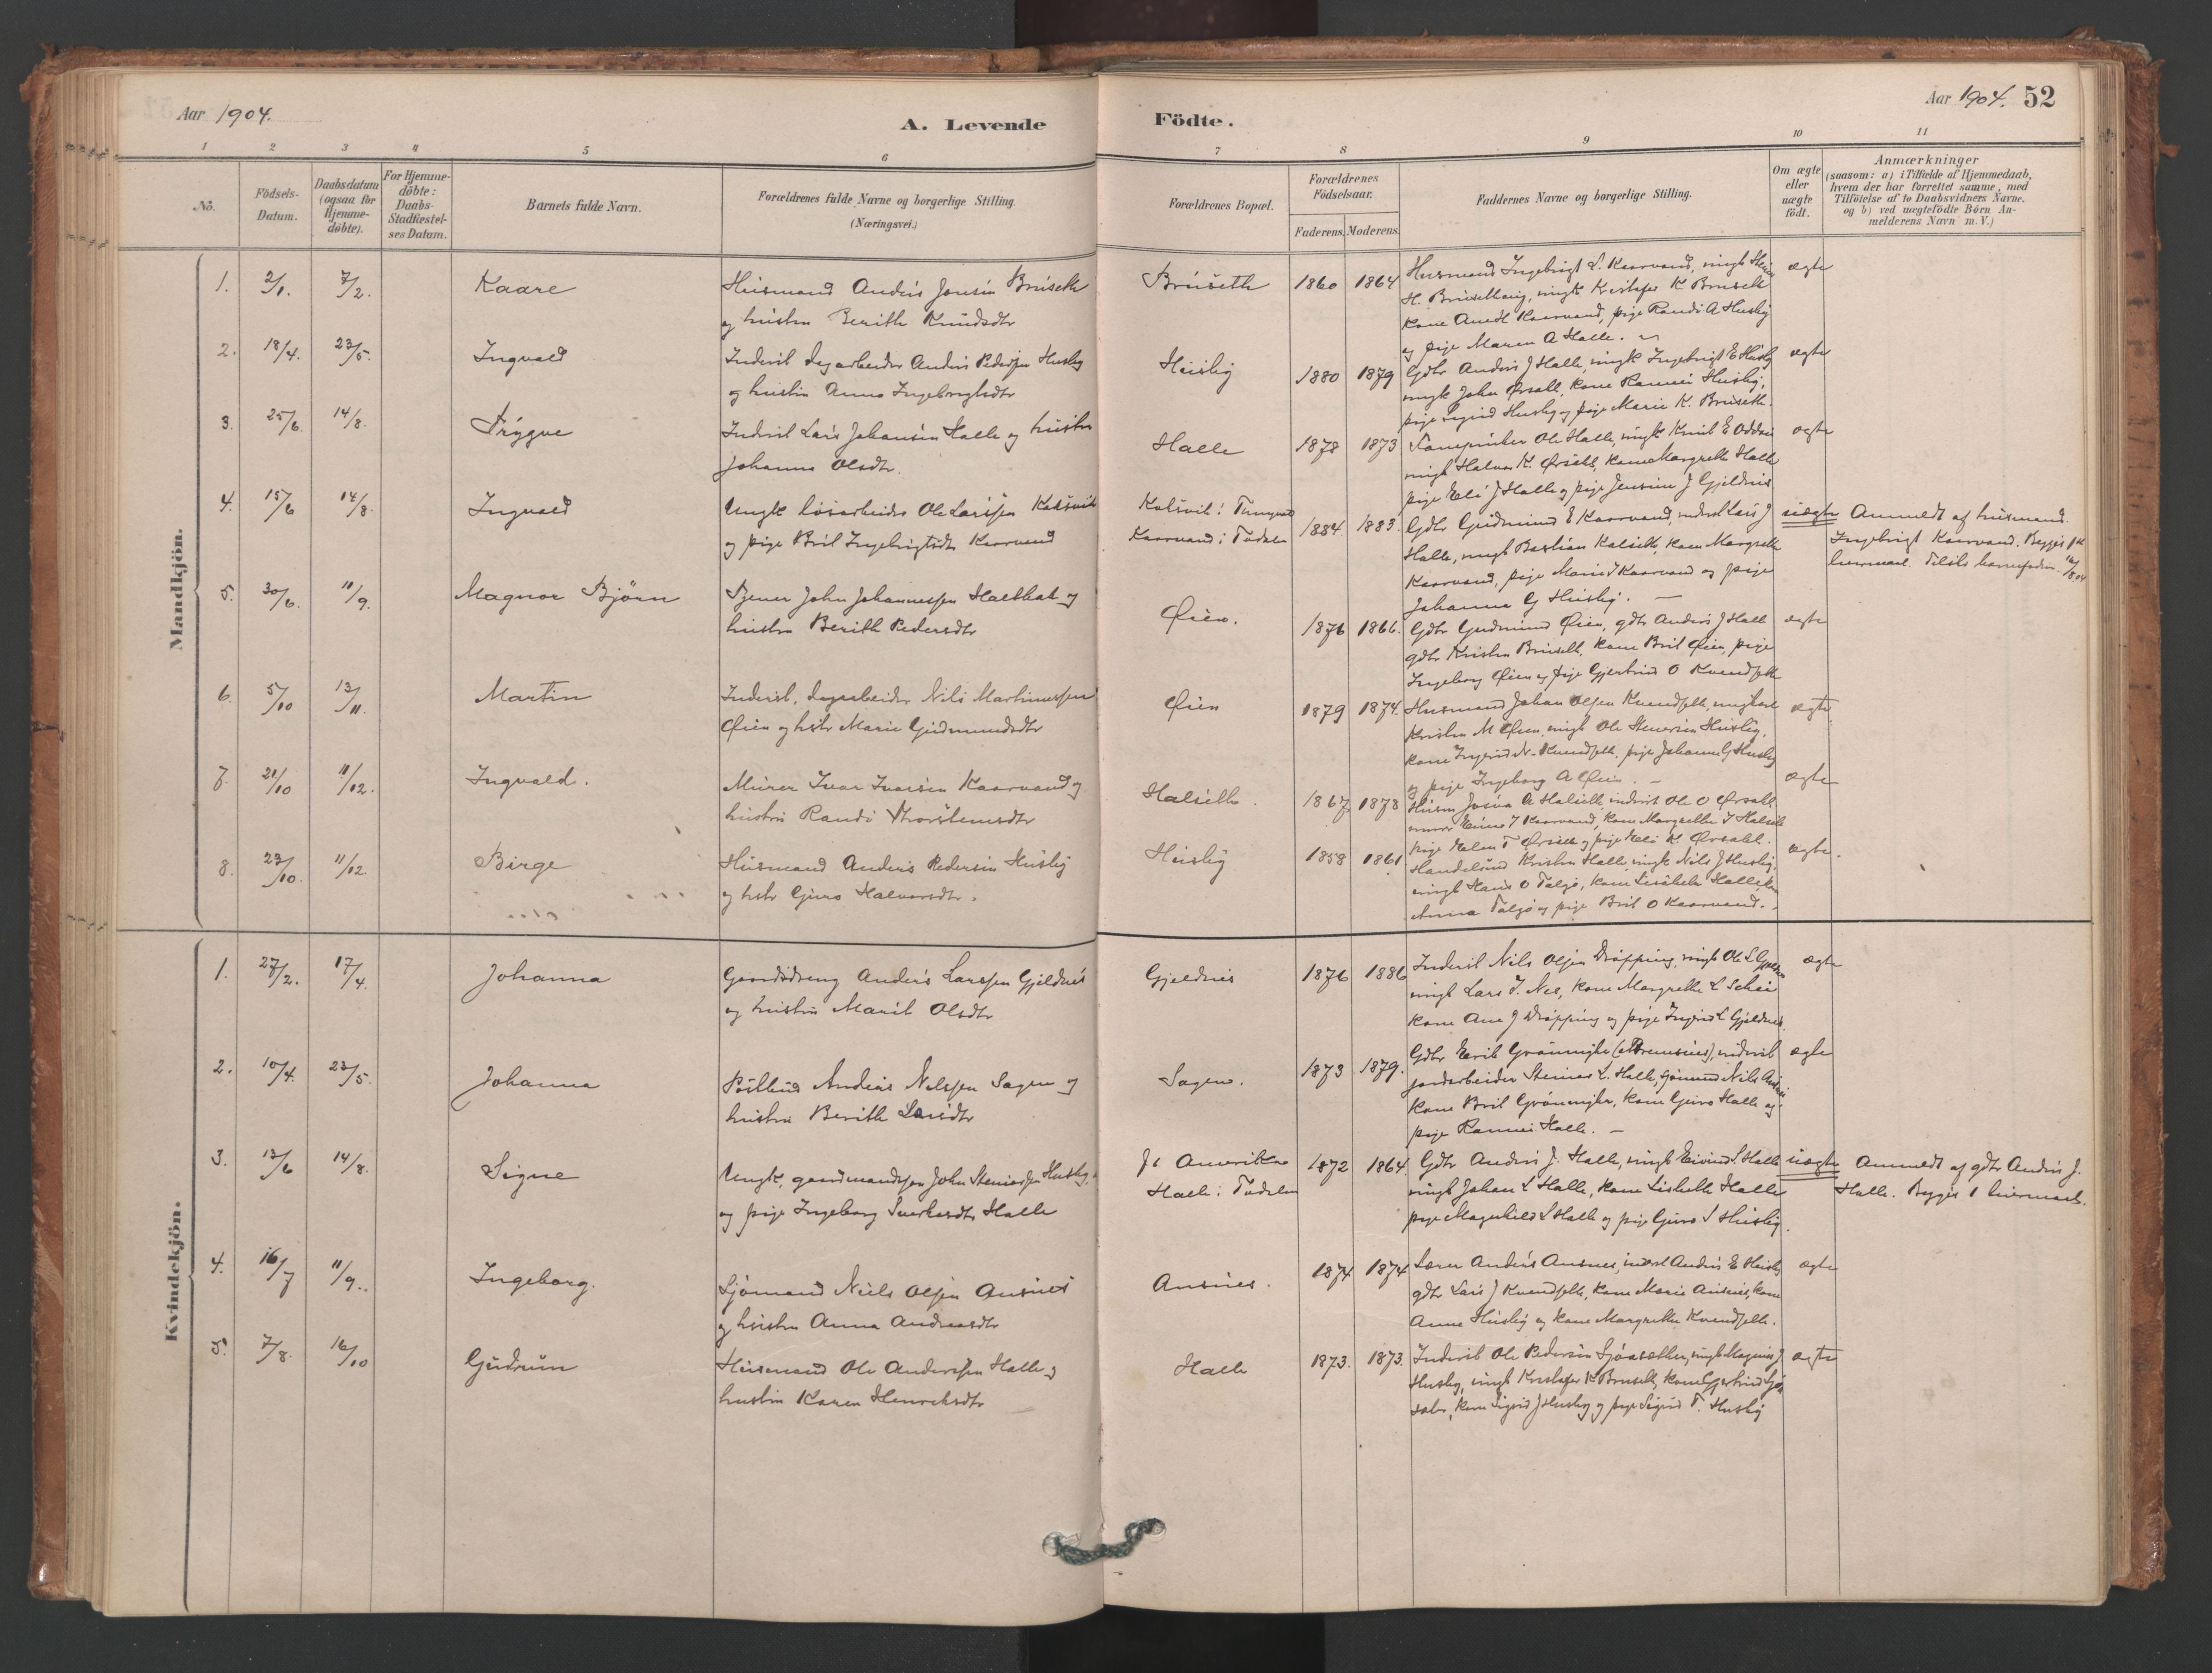 Aar 1904.
A. Levende Födte.
Aar 1904. 52
1 2 3 4 5 6 7 8 9 10 11
No.
Födsels-Datum.
Daabsdatum (ogsaa for Hjemme-döbte).
For Hjemme-döbte: Daabs-Stadfæstel-ses Datum.
Barnets fulde Navn.
Forældrenes fulde Navne og borgerlige Stilling. (Næringsvei.)
Forældrenes Bopæl.
Forældrenes Födselsaar.
Faderens. Moderens.
Faddernes Navne og borgerlige Stilling.
Om ægte eller uægte födt.
Anmærkninger
(saasom: a) i Tilfælde af Hjemmedaab,
hvem der har forrettet samme, med
Tilföielse af to Daabsvidners Navne.
og b) ved uægtefödte Börn An-
melderens Navn m. V.)
Mandkjön.
1. 2/1. 7/2. Kaare
Husmand Anders Jonsen Bruseth
og hustru Berith Knudsdtr
Bruseth 1860 1864
Husmand Ingebrigt L. Kaarvand, ungk
H. Brusethaug, ungk Kristofer K Bruseth
kone Kaarvand, pige Randi A Husby
og pige Maren A Halle.
ægte
2. 18/4. 23/5. Ingvald
Inderst dagarbeider Anders Pedersen Husby
og hustru Anna Ingebrigtsdtr
Husby 1880 1879
Gdbr Anders J Halle, ungk Ingebrigt E Husby
ungk John Ørsahl, kone Rannei Husby,
pige Sigrid Husby og pige Marie K. Bruseth.
ægte
3. 25/6. 14/8. Trygve
Inderst Lars Johansen Halle og hustru
Johanna Olsdtr.
Halle 1878 1873
Ole Halle, ungk Knut E
ungk Halvor K. Ørsahl, kone Margrethe Halle
pige Eli J Halle og pige Jensine J Gjeldnes
ægte
4. 15/6 14/8. Ingvald
Ungk løsarbeider Ole Larssen Kalsvik
og pige Brit Ingebrigtsdtr Kaarvand
Kalsvik i
Kaarvand i Todalen
1884 1883.
Gdbr Gudmund E Kaarvand, inderst Lars J
Halle, ungk Bastian Kalseth, kone Margrethe
Kaarvand, pige Marie I Kaarvand og pige
Johanna G Husby.
uægte
Anmeldt af husmand
Ingebrigt Kaarvand. Begges 1ste
leiermaal.
5. 30/6. 11/9. Magnor Bjørn
John Johannessen og
hustru Berith Pedersdtr
Øien. 1876 1866.
Gdbr Gudmund Øien, gdbr Anders J Halle
gdbr Kristen Bruseth, kone Brit Øien, pige
Ingeborg Øien og pige Gjertrud O Kvendseth
ægte
6. 5/10 13/11. Martin
Inderst, dagarbeider Nils Martinussen
Øien og hstr Marie Gudmundsdtr
Øien 1879 1874.
Husmand Johan Olsen Kvendseth, ungkarl
Kristen M Øien, ungk Ole Steinersen Husby,
kone Ingrid N. Kvendseth, pige Johanna G Husby
og pige Ingeborg A Øien.
ægte
7. 21/10 11/12. Ingvald.
Murer Ivar Ivarsen Kaarvand og
hustru Randi Thorstensdtr
Halseth. 1867 1878
Husm Josva A Halseth, inderst Ole O Ørsahl
murer I Kaarvand, kone Margrethe I Halseth
pige Elen T Ørsahl og pige Eli K. Ørsahl.
ægte
8. 23/10. 11/12 Birge
Husmand Anders Pedersen Husby
og hstr Guro Halvorsdtr.
Husby 1858 1861.
Handelsmd Kristen Halle, ungk Nils J Husby,
ungk Hans O Talgø, kone Lisabeth Halle, kone
Anna Talgø og pige Brit O Kaarvand.
ægte.
Kvindekjön.
1. 27/2. 17/4. Johanna
Gaardsdreng Anders Larssen Gjeldnes
og hustru Marit Olsdtr
Gjeldnes 1876 1886
Inderst Nils Olsen Drøpping, ungk Ole L Gjeldnes
ungk Lars J. Nes, kone Margrethe L Schei
kone Ane J Drøpping og pige Ingrid L Gjeldnes.
ægte
2. 10/4. 23/5. Johanna
Andreas Nilssen Sagen og
hustru Berith Larsdtr
Sagen. 1873 1879.
Gdbr Erik Grønmyhr (af Bremsnes), inderst
jordarbeider Steiner L. Halle, sjømand Nils
kone Brit Grønmyhr, kone Guro Halle og
pige Rannei Halle.
ægte
3. 13/6 14/8. Signe
Ungk, gaardmandssøn John Steinersen Husby,
og pige Ingeborg Halle
f t Amerika
Halle i Todalen
1872 1864.
Gdbr Anders J. Halle, ungk Eivind S Halle
ungk Johan L Halle, kone Lisbeth Halle
pige Magnhild L Halle og pige Guro S Husby.
uægte
Anmeldt af gdbr Anders J.
Halle. Begges 1 leiermaal.
4. 16/7 11/9. Ingeborg.
Sjømand Niels Olsen Ausnes
og hustru Anna Andreasdtr
Ausnes. 1874 1874
Lærer Anders Ausnes, inderst Anders E Husby
gdbr Lars J Kvendseth, kone Marie Ausnes, kone
Anne Husby og kone Margrethe Kvendseth.
ægte
5. 7/8. 16/10 Gudrun
Husmand Ole Anderssen Halle og
hustru Karen Henriksdtr
Halle 1873. 1873.
Inderst Ole Pedersen Sjøasæther, ungk Magnus J.
Husby, ungk Kristofer K Bruseth, kone Gjertrud
kone Sigrid J Husby og pige Sigrid T. Husby
ægte